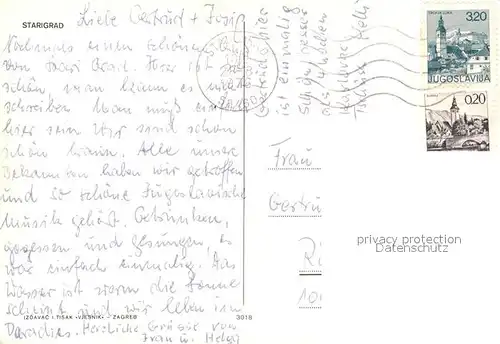 STARIGRAD
Liebe Gertrud + Josip
Nochmals einen schönen
von Stari Grad. Hier ist es
schön, man kann es nicht
schreiben man muß
hier sein. Wir sind schon
schön braun. Alle unsere
Bekannten haben wir getroffen
und so schöne Jugoslawische
Musik gehört. Getrunken,
gegessen und gesungen, es
war einfach einmalig. Das
Wasser ist warm die Sonne
scheint und wir leben im
Paradies. Herzliche Grüsse von
Fran u. Helga
IZDAVAČ I TISAK »VJESNIK« - ZAGREB
3018
ist einmalig
3.20
JUGOSLAVIJA
0.20
Frau
Gertru
R
privacy protection
Datenschutz